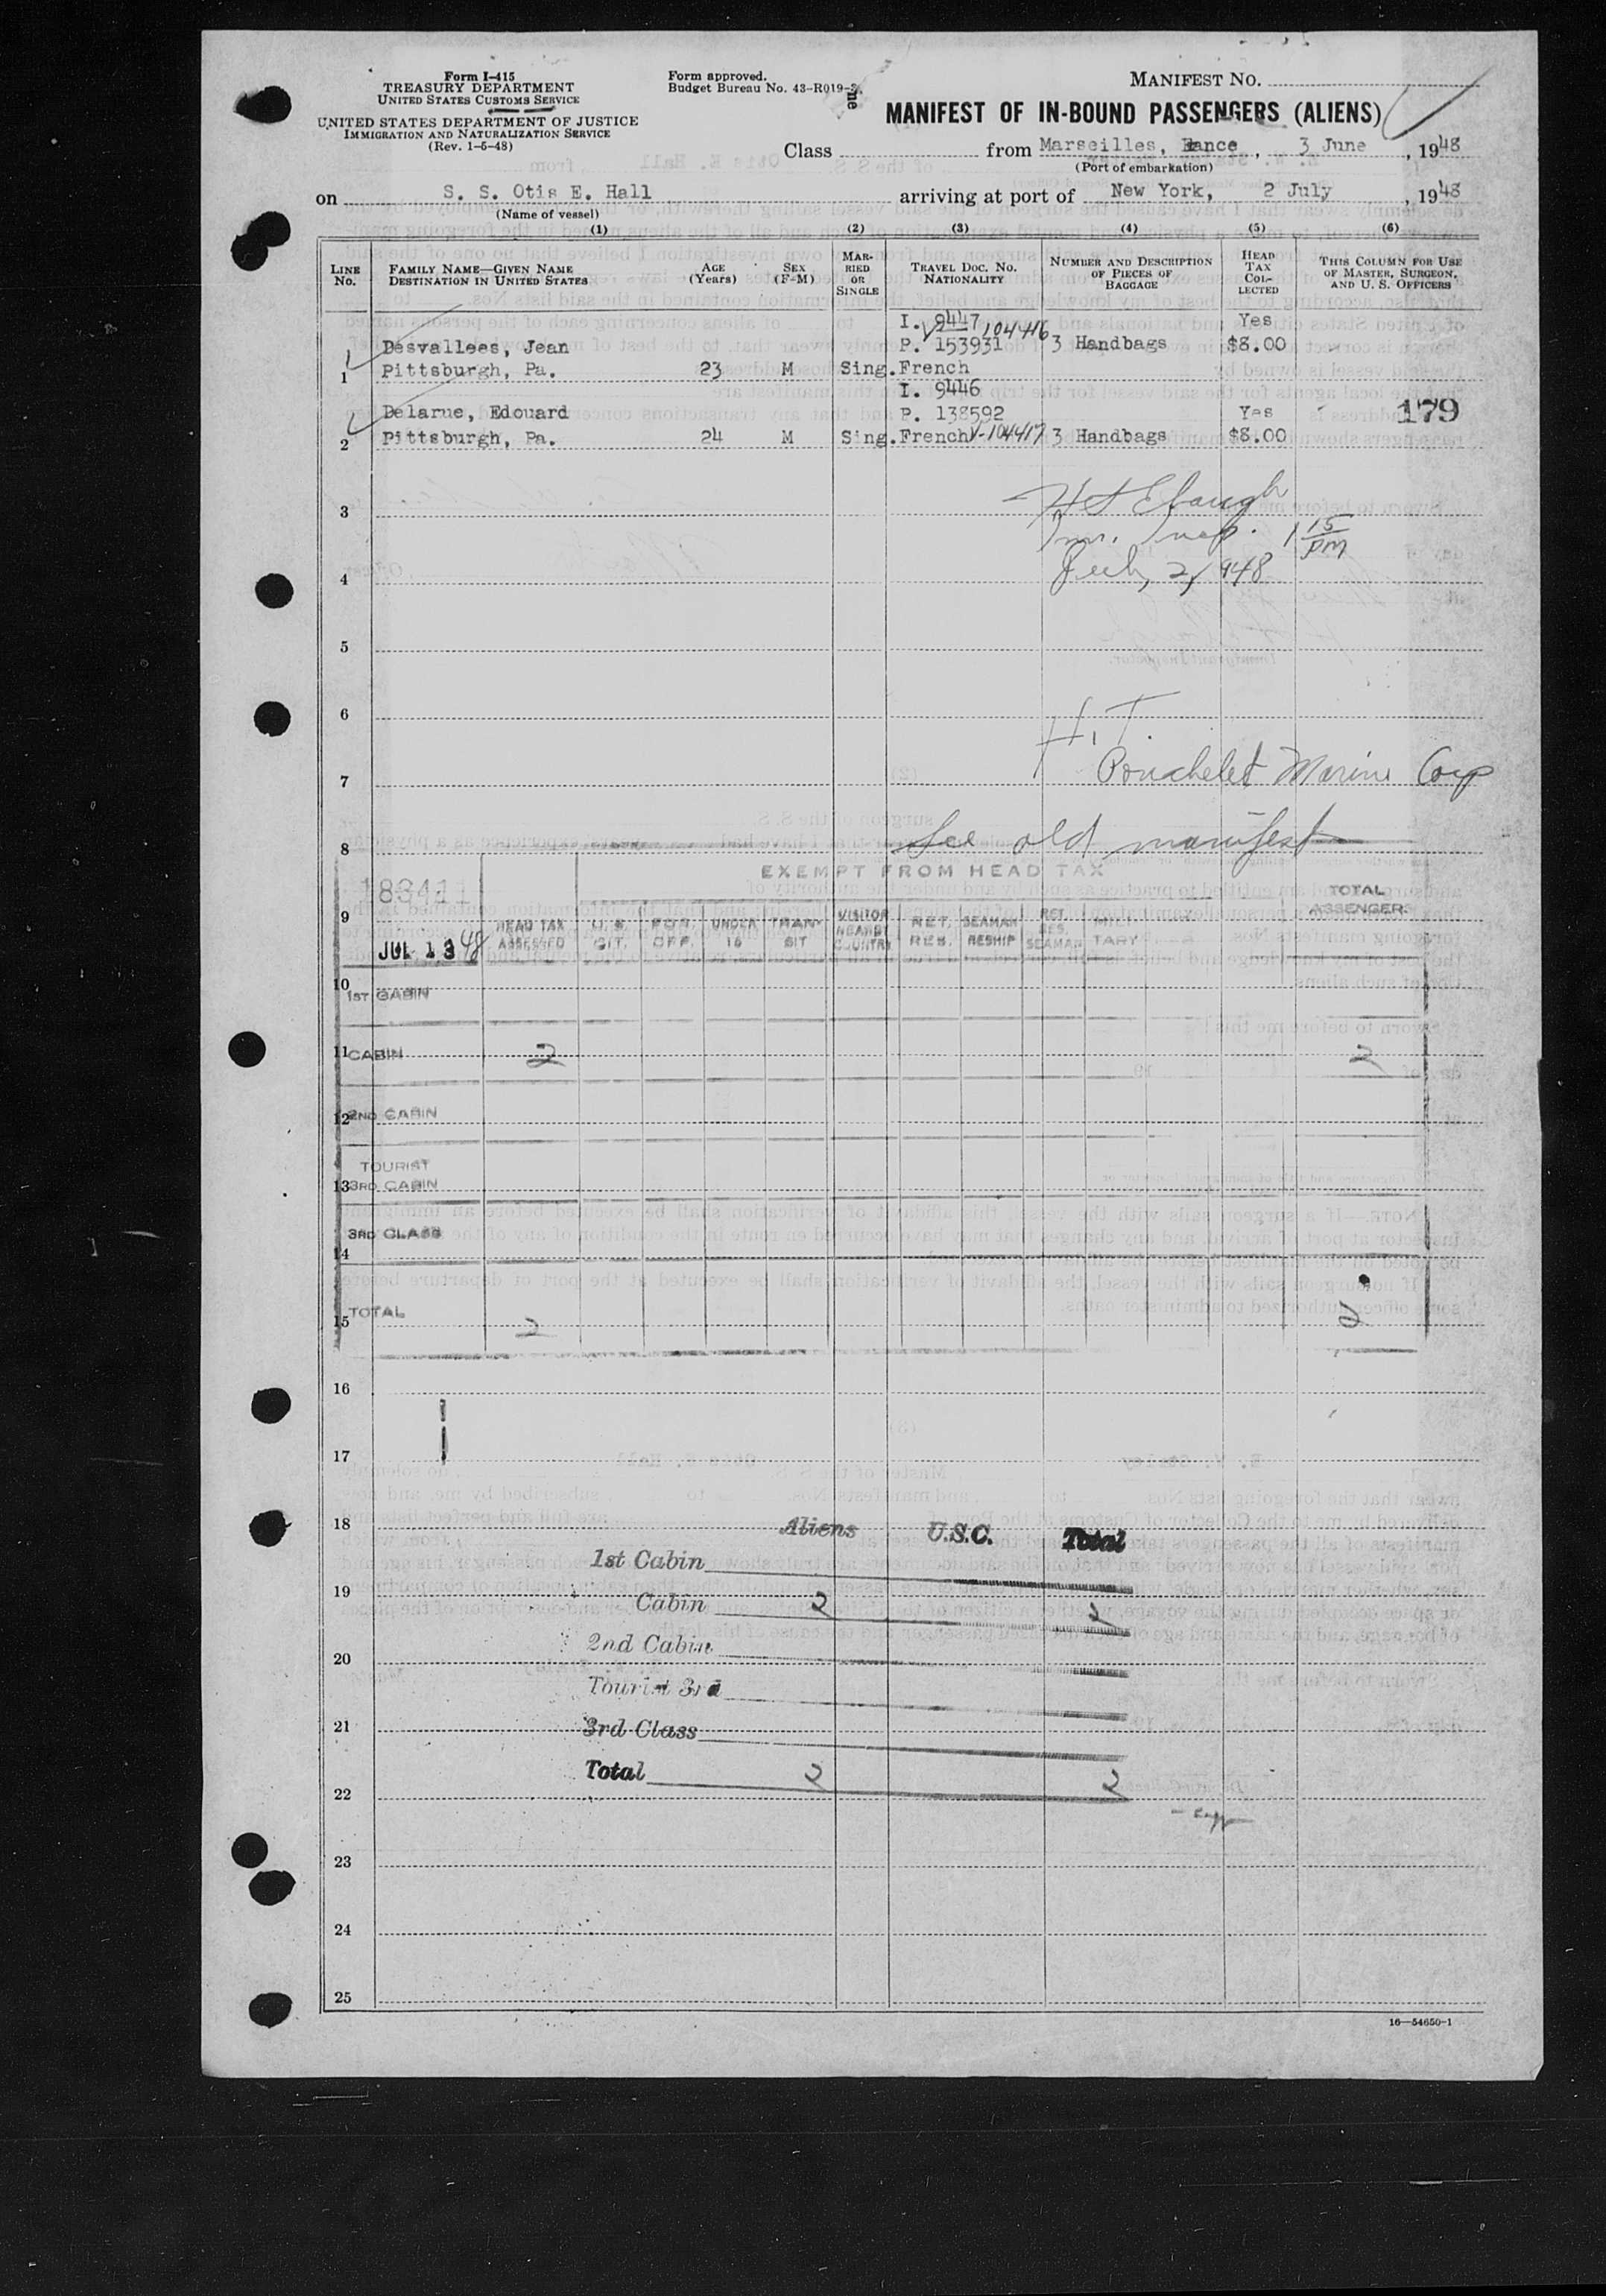 Form I-415
TREASURY DEPARTMENT
UNITED STATES CUSTOMS SERVICE
UNITED STATES DEPARTMENT OF JUSTICE
IMMIGRATION AND NATURALIZATION SERVICE
(Rev. 1-5-48)
Form approved.
Budget Bureau No. 43-R019-
MANIFEST NO.
MANIFEST OF IN-BOUND PASSENGERS (ALIENS)
Class from Marseilles, France, 3 June, 1948
(Port of embarkation)
on S. S. Otis E. Hall arriving at port of New York, 2 July, 1948
(Name of vessel)
(1) (2) (3) (4) (5) (6)
LINE No. FAMILY NAME—GIVEN NAME DESTINATION IN UNITED STATES AGE (Years) SEX (F-M) MARRIED OR SINGLE TRAVEL DOC. NO. NATIONALITY NUMBER AND DESCRIPTION OF PIECES OF BAGGAGE HEAD TAX COLLECTED THIS COLUMN FOR USE OF MASTER, SURGEON, AND U. S. OFFICERS
I. 9447 Yes
V 104416
Desvallees, Jean P. 153931 3 Handbags $8.00
1 Pittsburgh, Pa. 23 M Sing. French
I. 9446
Delarue, Edouard P. 138592 Yes 179
2 Pittsburgh, Pa. 24 M Sing. French V-104417 3 Handbags $8.00
H S Ebaugh
3
Imm. Insp. 1 15 PM
July 2, 1948
4
5
6
H. T.
7 Pouchelet Marine Corp
8 See old manifest
EXEMPT FROM HEAD TAX
183411 TOTAL PASSENGERS
9 HEAD TAX ASSESSED U.S. CIT. FOR. OFF. UNDER 16 TRANSIT VISITOR NEARBY COUNTRY RET. RES. SEAMAN RESHIP RET. RES. SEAMAN MILITARY
JUL 13 48
10 1ST CABIN
11 CABIN 2 2
12 2ND CABIN
TOURIST
13 3RD CABIN
3RD CLASS
14
TOTAL
15 2 2
16
17
18 Aliens U.S.C. Total
1st Cabin
19
Cabin 2 2
2nd Cabin
20
Tourist 3rd
21 3rd Class
Total 2 2
22
23
24
25
16—54650-1